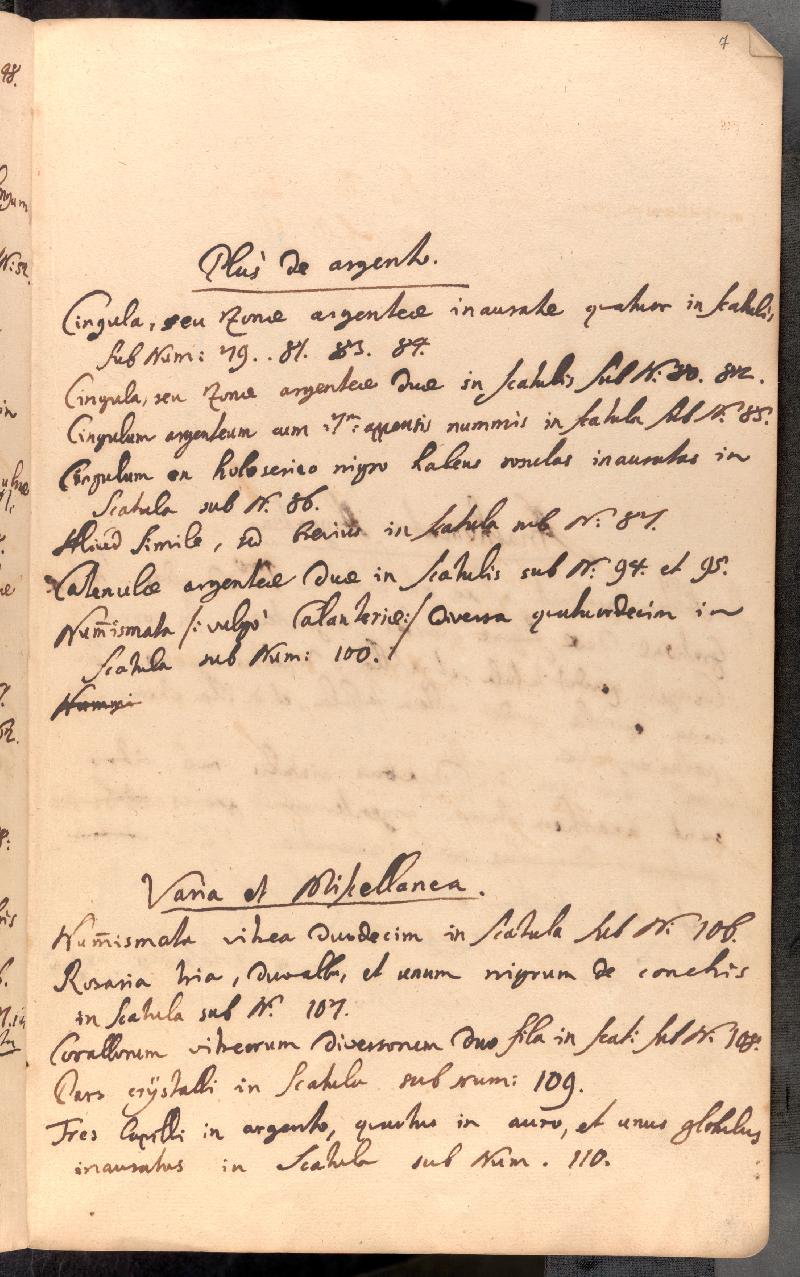 7
Plus de argento.
Cingula, seu Zonæ argenteæ inauratæ quatuor in scatulis
sub Num: 79. . 81. 83. 84.
Cingula, seu Zonæ argenteæ duæ in scatulis sub N: 80. 82.
Cingulum argenteum cum :7m: appensis nummis in scatula sub N: 85.
Cingulum ex holoserico nigro habens rosulas inauratas in
scatula sub N: 86.
Aliud simile, sed brevius in scatula sub N: 87.
Catenulæ argenteæ duæ in scatulis sub N: 94. et 95.
Num̄ismata /: vulgò Calanteriæ :/ diversa quatuordecim in
scatula sub Num: 100.
Nummi
Varia et Miscellanea.
Num̄ismata vitrea duodecim in scatula sub N: 106.
Rosaria tria, duo alba, et unum nigrum de conchis
in scatula sub N: 107.
Corallorum vitreorum diversorum duo fila in scat: sub N: 108.
Pars crÿstalli in scatula sub num: 109.
Tres Capilli in argento, quartus in auro, et unus globulus
inauratus in scatula sub Num. 110.